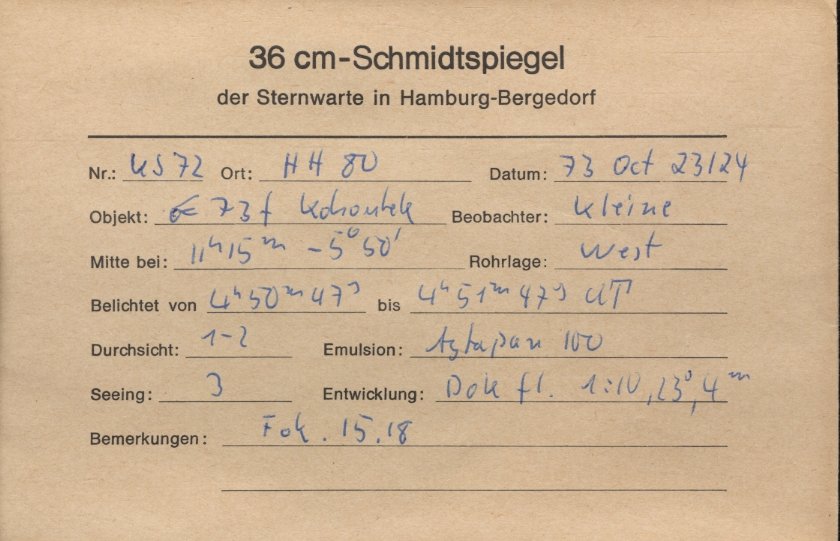 36 cm-Schmidtspiegel
der Sternwarte in Hamburg-Bergedorf
Nr.: KS 72 Ort: HH 80 Datum: 73 Oct 23/24
Objekt: 73 f Kohoutek Beobachter: Kleine
Mitte bei: 11ʰ15ᵐ -5°50' Rohrlage: West
Belichtet von 4ʰ50ᵐ47ˢ bis 4ʰ51ᵐ47ˢ UT
Durchsicht: 1-2 Emulsion: Agfapan 100
Seeing: 3 Entwicklung: Dok fl. 1:10, 23°, 4ᵐ
Bemerkungen: Fok. 15.18